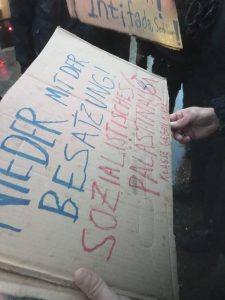 Intifada
NIEDER MIT DER
BESATZUNG!
SOZIALISTISCHES
PALÄSTINA